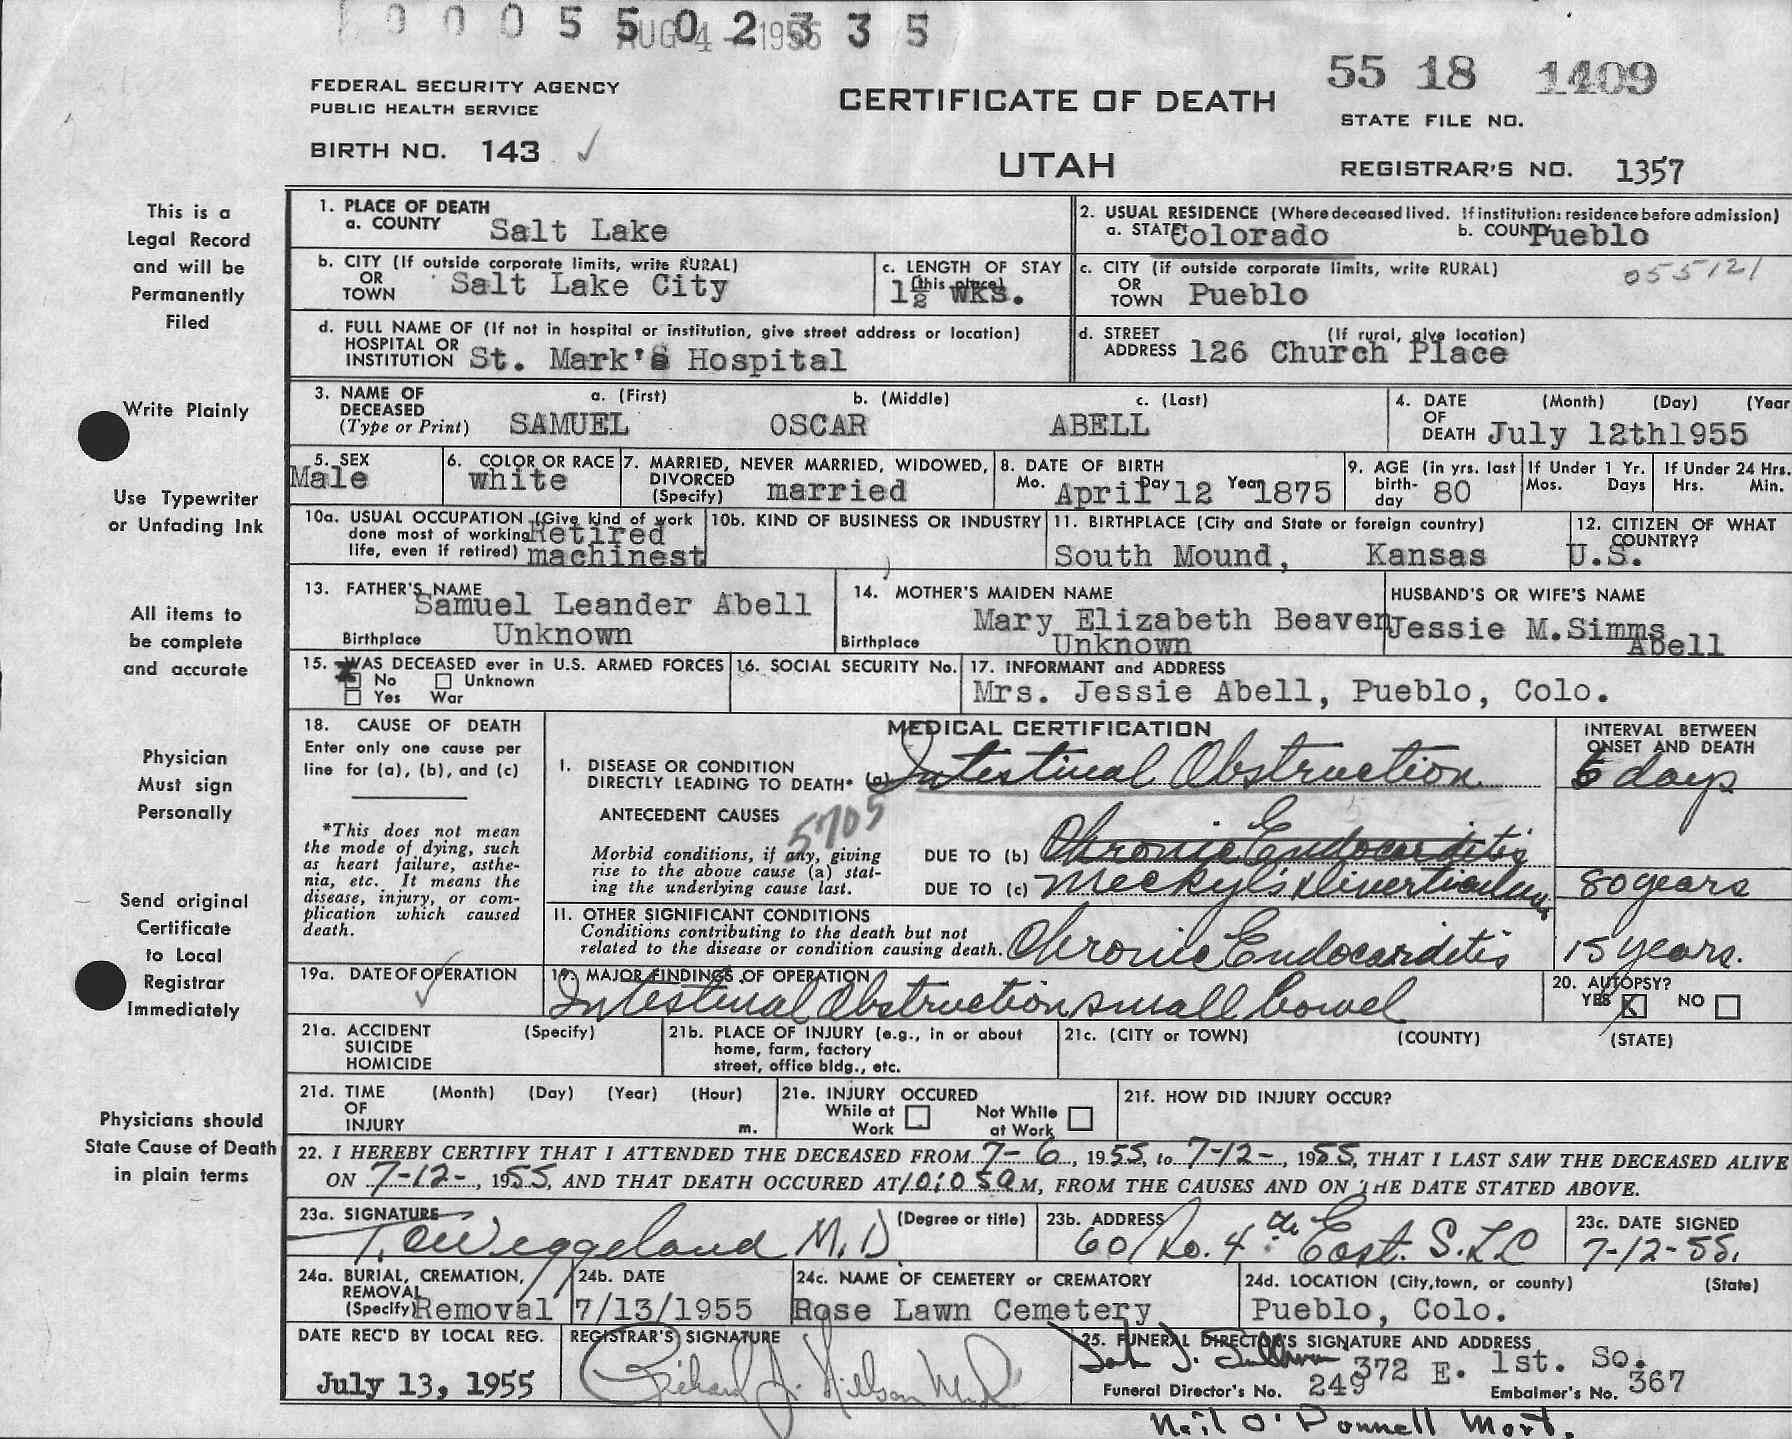 0005502335
AUG 4 - 1955
55 18 1409
FEDERAL SECURITY AGENCY
PUBLIC HEALTH SERVICE
CERTIFICATE OF DEATH
STATE FILE NO.
BIRTH NO. 143 ✓
UTAH
REGISTRAR'S NO. 1357
This is a
Legal Record
and will be
Permanently
Filed
Write Plainly
Use Typewriter
or Unfading Ink
All items to
be complete
and accurate
Physician
Must sign
Personally
Send original
Certificate
to Local
Registrar
Immediately
Physicians should
State Cause of Death
in plain terms
1. PLACE OF DEATH
a. COUNTY Salt Lake
2. USUAL RESIDENCE (Where deceased lived. If institution: residence before admission)
a. STATE Colorado b. COUNTY Pueblo
b. CITY (If outside corporate limits, write RURAL)
OR
TOWN Salt Lake City
c. LENGTH OF STAY
(this place)
1½ wks.
c. CITY (if outside corporate limits, write RURAL) 055121
OR
TOWN Pueblo
d. FULL NAME OF (If not in hospital or institution, give street address or location)
HOSPITAL OR
INSTITUTION St. Mark's Hospital
d. STREET (If rural, give location)
ADDRESS 126 Church Place
3. NAME OF DECEASED (Type or Print)
a. (First) b. (Middle) c. (Last)
SAMUEL OSCAR ABELL
4. DATE OF DEATH (Month) (Day) (Year
July 12th1955
5. SEX
Male
6. COLOR OR RACE
white
7. MARRIED, NEVER MARRIED, WIDOWED,
DIVORCED
(Specify) married
8. DATE OF BIRTH
Mo. April Day 12 Year 1875
9. AGE (in yrs. last
birth-
day 80
If Under 1 Yr.
Mos. Days
If Under 24 Hrs.
Hrs. Min.
10a. USUAL OCCUPATION (Give kind of work
done most of working
life, even if retired)
Retired
machinest
10b. KIND OF BUSINESS OR INDUSTRY
11. BIRTHPLACE (City and State or foreign country)
South Mound, Kansas
12. CITIZEN OF WHAT
COUNTRY?
U.S.
13. FATHER'S NAME
Samuel Leander Abell
Birthplace Unknown
14. MOTHER'S MAIDEN NAME
Mary Elizabeth Beaven
Birthplace Unknown
HUSBAND'S OR WIFE'S NAME
Jessie M.Simms
Abell
15. WAS DECEASED ever in U.S. ARMED FORCES
No Unknown
Yes War
16. SOCIAL SECURITY No.
17. INFORMANT and ADDRESS
Mrs. Jessie Abell, Pueblo, Colo.
18. CAUSE OF DEATH
Enter only one cause per
line for (a), (b), and (c)
*This does not mean
the mode of dying, such
as heart failure, asthe-
nia, etc. It means the
disease, injury, or com-
plication which caused
death.
MEDICAL CERTIFICATION
INTERVAL BETWEEN
ONSET AND DEATH
I. DISEASE OR CONDITION
DIRECTLY LEADING TO DEATH* (a) Intestinal Obstruction
days
ANTECEDENT CAUSES
5705
Morbid conditions, if any, giving
rise to the above cause (a) stat-
ing the underlying cause last.
DUE TO (b) Chronic Endocarditis
DUE TO (c) Meckyl's Diverticulum
80 years
II. OTHER SIGNIFICANT CONDITIONS
Conditions contributing to the death but not
related to the disease or condition causing death. Chronic Endocarditis
15 years.
19a. DATE OF OPERATION
✓
19b. MAJOR FINDINGS OF OPERATION
Intestinal Obstruction small bowel
20. AUTOPSY?
YES X NO
21a. ACCIDENT (Specify)
SUICIDE
HOMICIDE
21b. PLACE OF INJURY (e.g., in or about
home, farm, factory
street, office bldg., etc.
21c. (CITY or TOWN) (COUNTY) (STATE)
21d. TIME (Month) (Day) (Year) (Hour)
OF
INJURY m.
21e. INJURY OCCURED
While at Work Not While at Work
21f. HOW DID INJURY OCCUR?
22. I HEREBY CERTIFY THAT I ATTENDED THE DECEASED FROM 7-6, 1955, to 7-12-, 1955, THAT I LAST SAW THE DECEASED ALIVE
ON 7-12-, 1955, AND THAT DEATH OCCURED AT 10:05 a M, FROM THE CAUSES AND ON THE DATE STATED ABOVE.
23a. SIGNATURE (Degree or title)
Weggeland M.D
23b. ADDRESS
601 So. 4th East. S.L.C
23c. DATE SIGNED
7-12-55.
24a. BURIAL, CREMATION,
REMOVAL
(Specify) Removal
24b. DATE
7/13/1955
24c. NAME OF CEMETERY or CREMATORY
Rose Lawn Cemetery
24d. LOCATION (City,town, or county) (State)
Pueblo, Colo.
DATE REC'D BY LOCAL REG.
July 13, 1955
REGISTRAR'S SIGNATURE
Richard J.
25. FUNERAL DIRECTOR'S SIGNATURE AND ADDRESS
John J. Sullivan 372 E. 1st. So.
Funeral Director's No. 249 Embalmer's No. 367
Neil O'Donnell Mort.